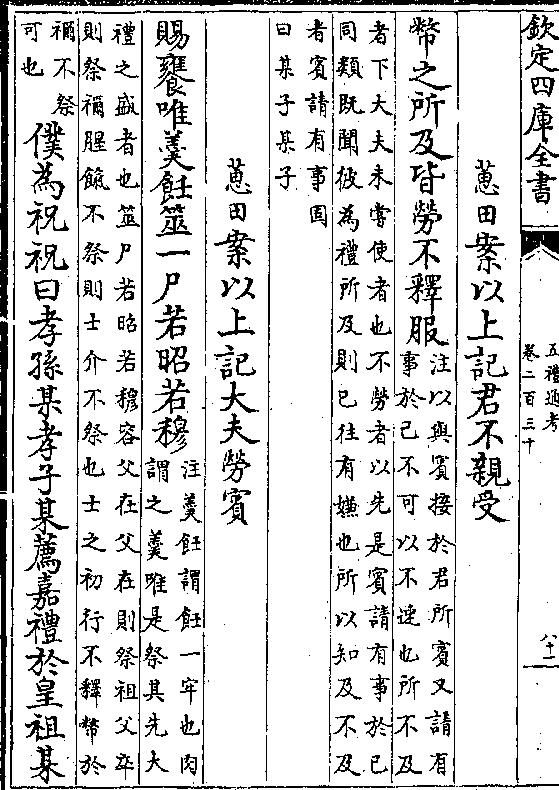 欽定四庫全書
五禮通考
卷二百三十
八十二
蕙田案以上記君不親受
幣之所及皆勞不釋服
注以與賓接於君所賓又請有
事於己不可以不速也所不及
者下大夫未嘗使者也不勞者以先是賓請有事於己
同類既聞彼為禮所及則已往有嫌也所以知及不及
者賓請有事固
曰某子某子
蕙田案以上記大夫勞賓
賜饔唯羹飪筮一尸若昭若穆
注羹飪謂飪一牢也肉
謂之羹唯是祭其先大
禮之盛者也筮尸若昭若穆容父在父在則祭祖父卒
則祭禰腥餼不祭則士介不祭也士之初行不釋幣於
禰不祭
可也
僕為祝祝曰孝孫某孝子某薦嘉禮於皇祖某